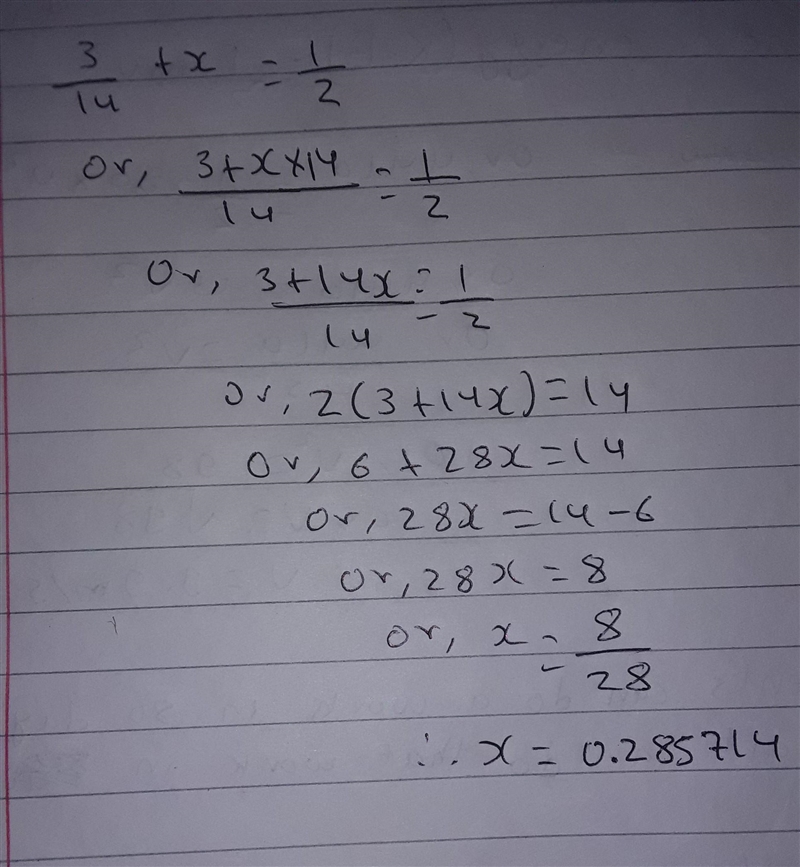 3/14 + x = 1/2
Or, (3+x×14)/14 = 1/2
Or, (3+14x)/14 = 1/2
Or, 2(3+14x)=14
Or, 6+28x=14
Or, 28x=14-6
Or, 28x=8
Or, x=8/28
∴ x = 0.285714